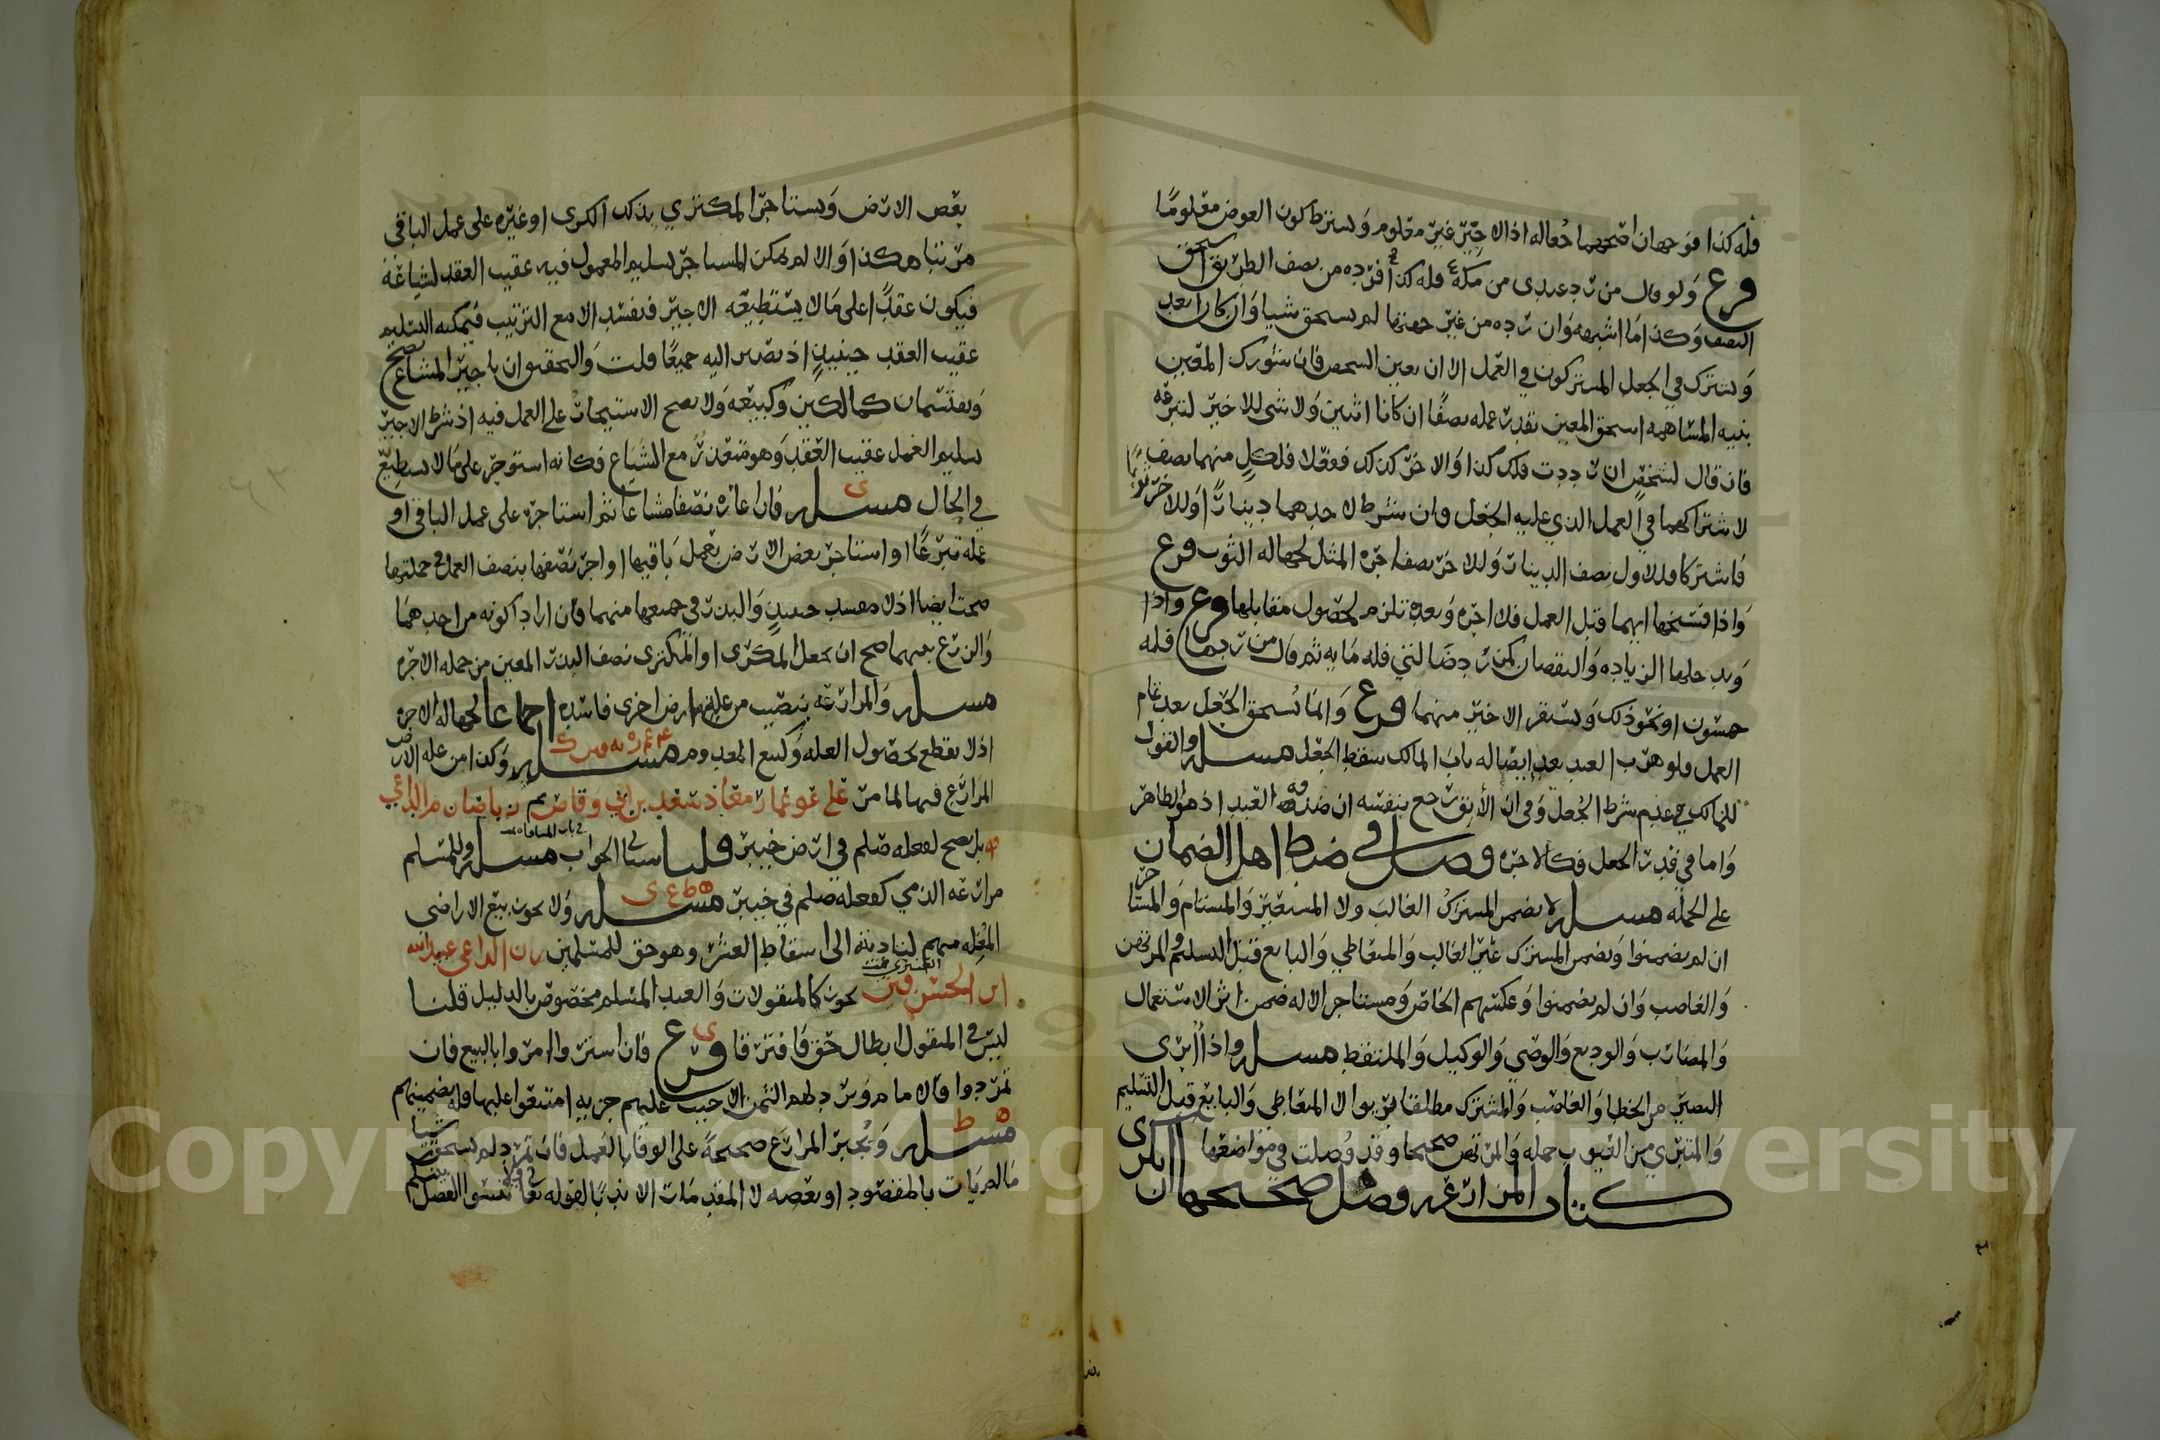 فله كذا فوجهان اصحهما جعاله اذ الاجير غير معلوم ويشترط كون العوض معلوما
فرع ولو قال من رد عبدي من مكة فله كذا فرده من نصف الطريق استحق
النصف وكذا ما اشبهه وان رده من غير جهتها لم يستحق شيا وان كان ابعد
ويشترك في الجعل المشتركون في العمل الا ان يعين الشخص فان شورك المعين
بنيه المساهمه استحق المعين بقدر عمله نصفا ان كانا اثنين ولا شي للاخير لتبرعه
فان قال لشخص ان رددت فلك كذا والاخر كذلك ففعلا فلكل منهما نصف
لاشتراكهما في العمل الذي عليه الجعل وان شرط لاحدهما دينارا وللاخر ثوبا
فاشتركا فللاول نصف الدينار وللاخر نصف اجره المثل لجهاله الثوب فرع
واذا فسخها ايهما قبل العمل فلا اجره وبعده تلزم لحصول مقابلها فرع واذا
ويدخلها الزياده والنقصان كمن رد ضالتي فله مايه ثم قال من ردها فله
خمسون او نحو ذلك ويستقر الاخير منهما فرع وانما يستحق الجعل بعد تمام
العمل فلو هرب العبد بعد ايصاله باب المالك سقط الجعل مسله والقول
للمالك في عدم شرط الجعل وفي ان الآبق رجع بنفسه ان ضده العبد اذ هو الظاهر
واما في قدر الجعل فكالاجره فصل في ضبط اهل الضمان
على الجمله مسله لا يضمن المشترك الغالب ولا المستعير والمستام والمستاجر
ان لم يضمنوا ويضمن المشترك غير الغالب والمتعاطي والبايع قبل التسليم والمرتهن
والغاصب وان لم يضمنوا وعكسهم الخاص ومستاجر الاله ضمن اثر الاستعمال
والمضارب والوديع والوصي والوكيل والملتقط مسله واذا ابرى
البصير من الخطا والغاصب والمشترك مطلقا بريوا لا المتعاطي والبايع قبل التسليم
والمتبري من العيوب جمله والمرتهن صحيحا وقد فصلت في مواضعها
كتاب المزارعه وفصل صحيحها ان يكري
بعض الارض ويستاجر المكتري بذلك الكرى او غيره على عمل الباقي
مرتبا هكذا والا لم يمكن المستاجر تسليم المعمول فيه عقيب العقد لشياعه
فيكون عقدا على ما لا يستطيعه الاجير فيفسد الا مع الترتيب فيمكنه التسليم
عقيب العقد حينيذ اذ تصير اليه جميعا قلت والتحقيق ان تاجير المشاع يصح
ويقتسمان كمالكين وكبيعه ولا يصح الاستيجار على العمل فيه اذ شرط الاجير
تسليم العمل عقيب العقد وهو متعذر مع الشياع فكانه استوجر على ما لا يستطيع
في الحال مسله فان اعاره نصفا مشاعا ثم استاجره على عمل الباقي او
عمله تبرعا او استاجر بعض الارض بعمل باقيها او اجر نصفها بنصف العمل في جملتها
صحت ايضا اذ لا مفسد حينيذ والبذر في جميعها منهما فان اراد كونه من احدهما
والزرع بينهما صح ان يجعل المكري او المكتري نصف البذر المعين من جمله الاجره
مسله والمزارعه بنصيب من غله ارض اخرى فاسده اجماعا لجهاله الاجره
اذ لا يقطع بحصول الغله وكبيع المعدوم مسله وكذا من غله الارض
المزارع فيها لما مر علي عمار معاذ سعد
بل يصح لفعله صلم في ارض خيبر قلنا سياتي الجواب في باب المساقاه مسله وللمسلم
مزارعه الذمي كفعله صلم في خيبر مسله ولا يجوز بيع الاراضي
المغله منهم لتاديته الى اسقاط العشر وهو حق للمسلمين ن الداعي عبيد الله
ابن الحسن العنبري يجوز كالمنقولات والعبد المسلم مخصوص بالدليل قلنا
ليس في المنقول ابطال حق فافترقا فرع فان استروا امروا بالبيع فان
تمردوا
مسله ويجبر المزارع صحيحة على الوفا بالعمل فان تمرد لم يستحق شيا
ما لم يات بالمقصود او بعضه لا المقدمات الا ندبا لقوله تعالى ولا تنسوا الفضل بينكم